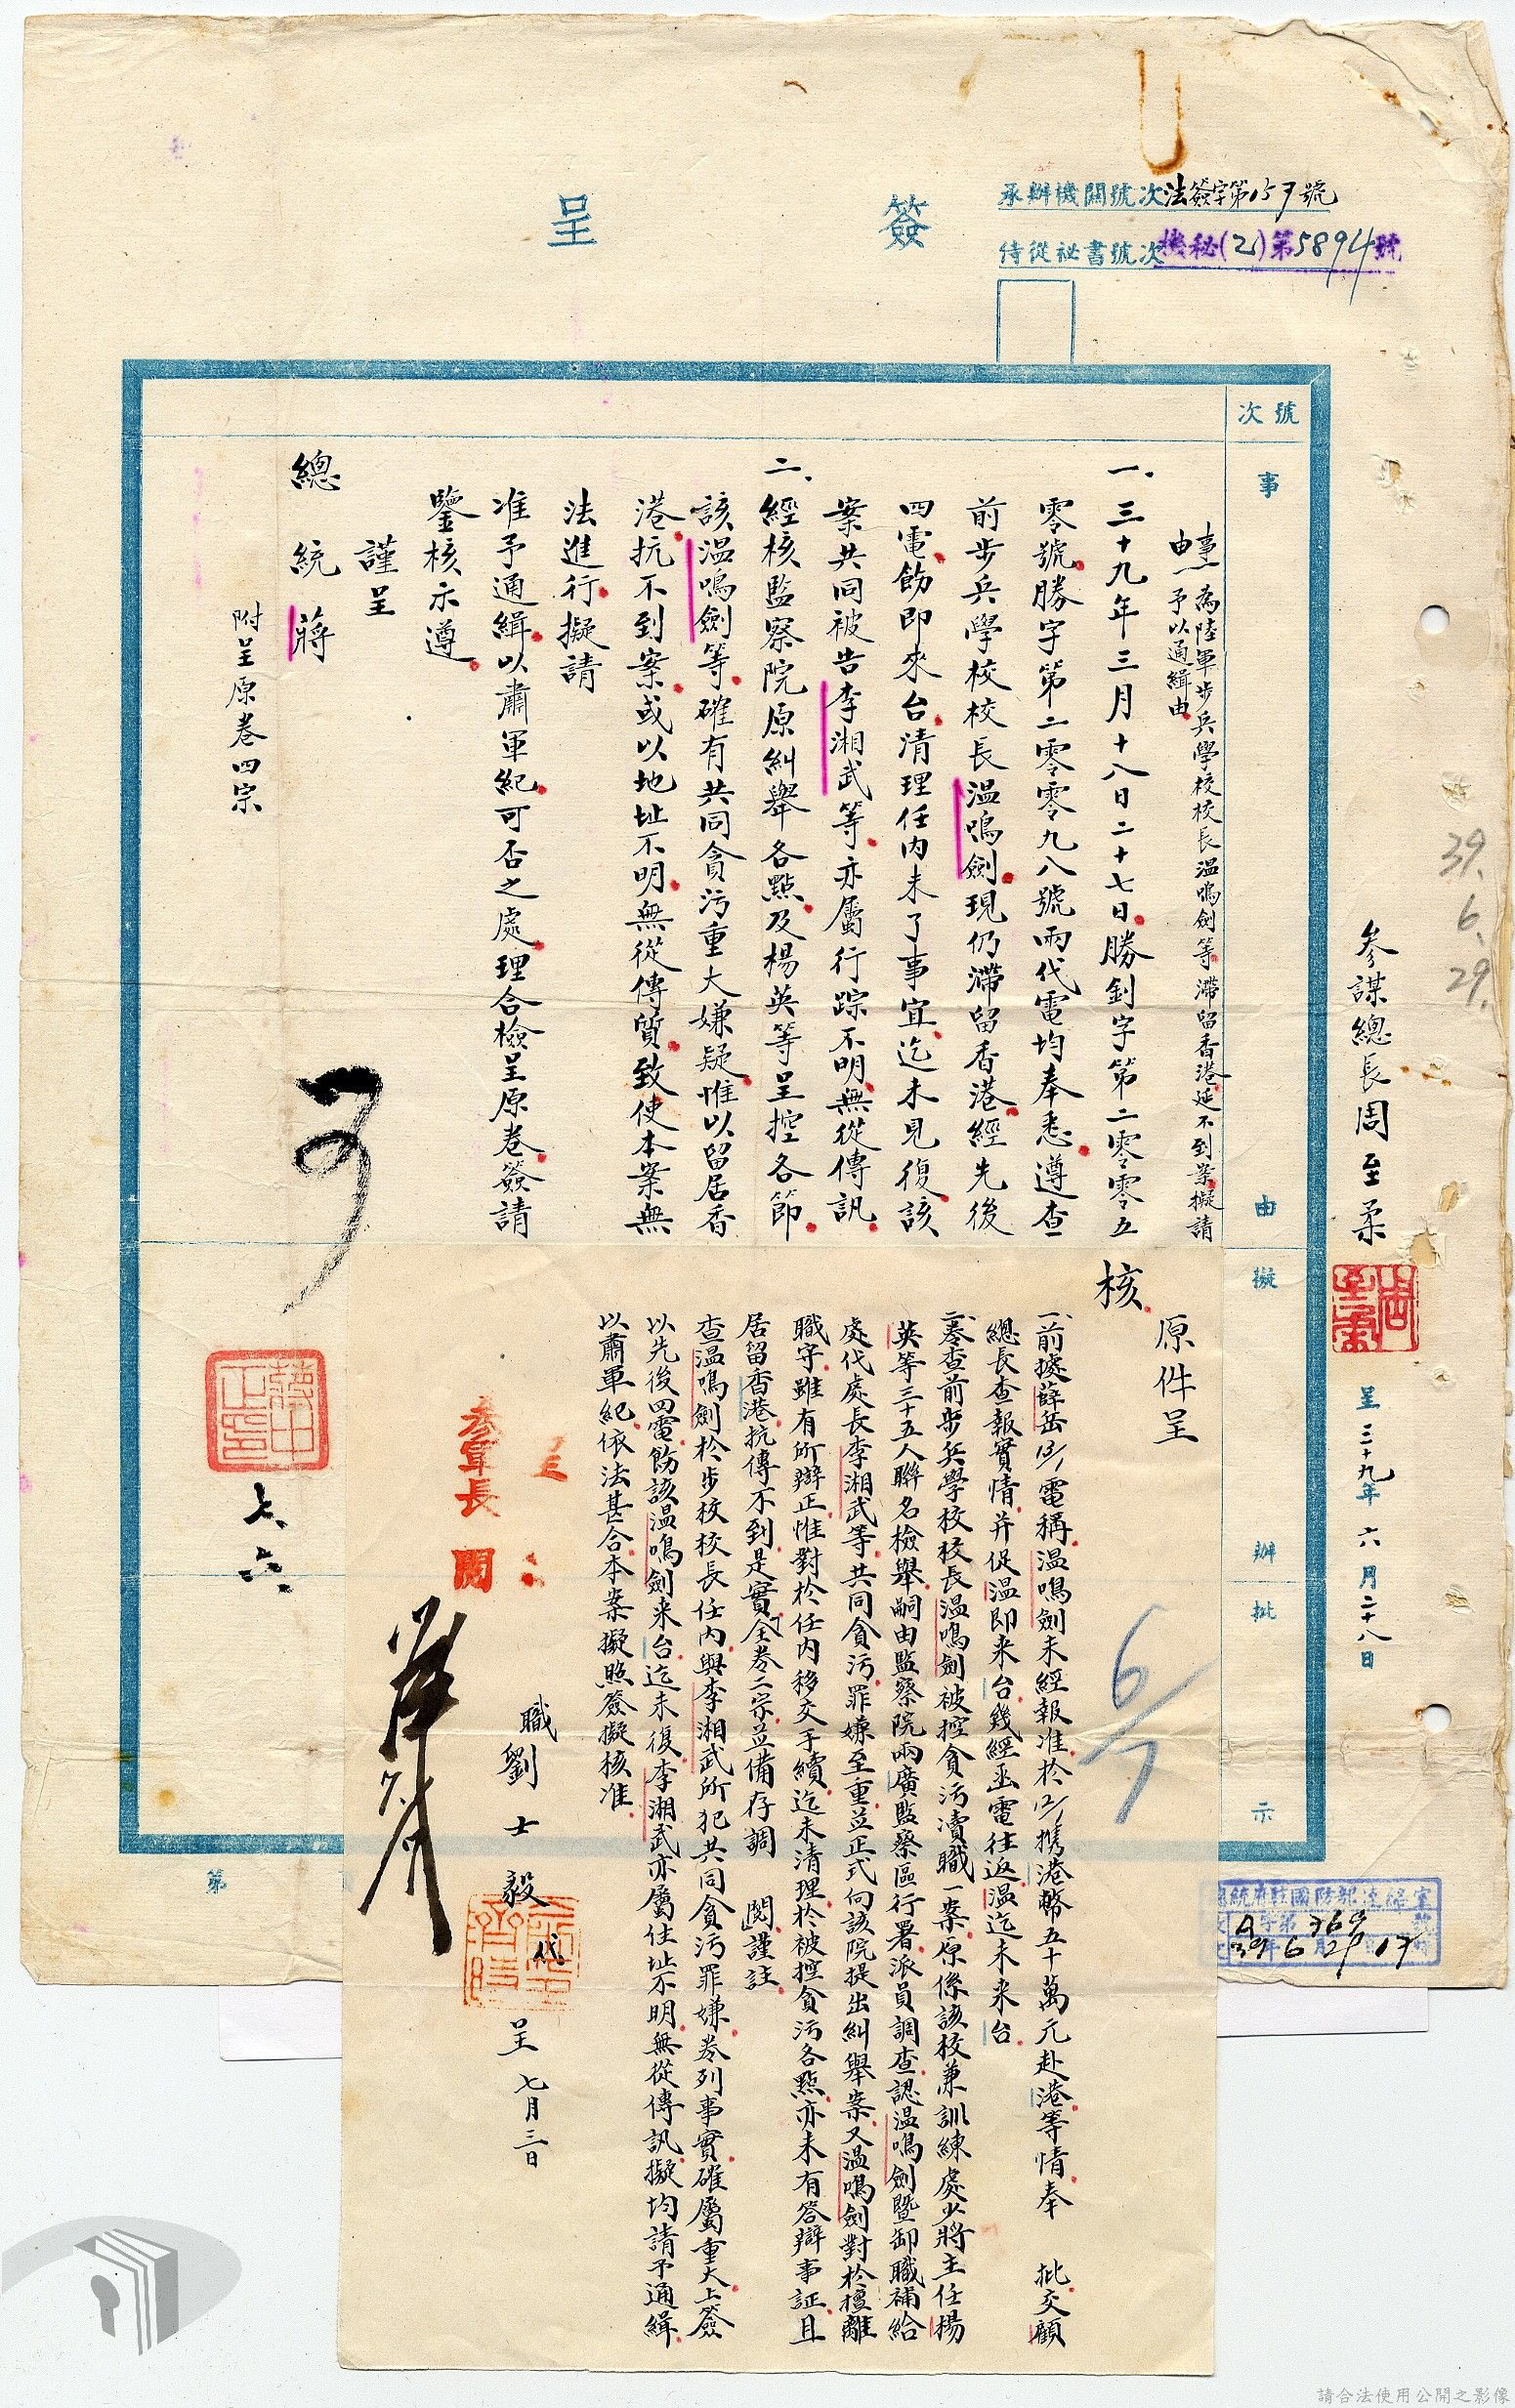 簽呈
承辦機關號次法簽字第157號
侍從祕書號次機秘(乙)第5894號
39.6.29.
參謀總長周至柔
呈三十九年六月二十八日
號次
事由
擬辦
批示
事由一為陸軍步兵學校校長溫鳴劍等滯留香港延不到案擬請
予以通緝由
一、三十九年三月十八日二十七日勝釗字第二零零五
零號勝字第二零零九八號兩代電均奉悉遵查
前步兵學校校長溫鳴劍現仍滯留香港經先後
四電飭即來台清理任內未了事宜迄未見復該
案共同被告李湘武等亦屬行踪不明無從傳訊
二、經核監察院原糾舉各點及楊英等呈控各節
該溫鳴劍等確有共同貪污重大嫌疑惟以留居香
港抗不到案或以地址不明無從傳質致使本案無
法進行擬請
准予通緝以肅軍紀可否之處理合檢呈原卷簽請
鑒核示遵
謹呈
總統 蔣
附呈原卷四宗
可
蔣中正印
七、六
原件呈
核
一、前據薛岳13/1電稱溫鳴劍未經報准於12/1携港幣五十萬元赴港等情奉 批交顧
總長查報實情并促溫即來台幾經函電往返溫迄未來台
二、卷查前步兵學校校長溫鳴劍被控貪污瀆職一案原係該校兼訓練處少將主任楊
英等三十五人聯名檢舉嗣由監察院兩廣監察區行署派員調查認溫鳴劍暨卸職補給
處代處長李湘武等共同貪污罪嫌至重並正式向該院提出糾舉案又溫鳴劍對於擅離
職守雖有所辯正惟對於任內移交手續迄未清理於被控貪污各點亦未有答辯事証且
居留香港抗傳不到是實「全卷二宗並備存調 閱謹註」
查溫鳴劍於步校校長任內與李湘武所犯共同貪污罪嫌卷列事實確屬重大上簽
以先後四電飭該溫鳴劍來台迄未復李湘武亦屬住址不明無從傳訊擬均請予通緝
以肅軍紀依法甚合本案擬照簽擬核准
職劉士毅 代
呈 七月三日
參軍長 閱
6/7
總統府駐國防部連絡室
第
請合法使用公開之影像